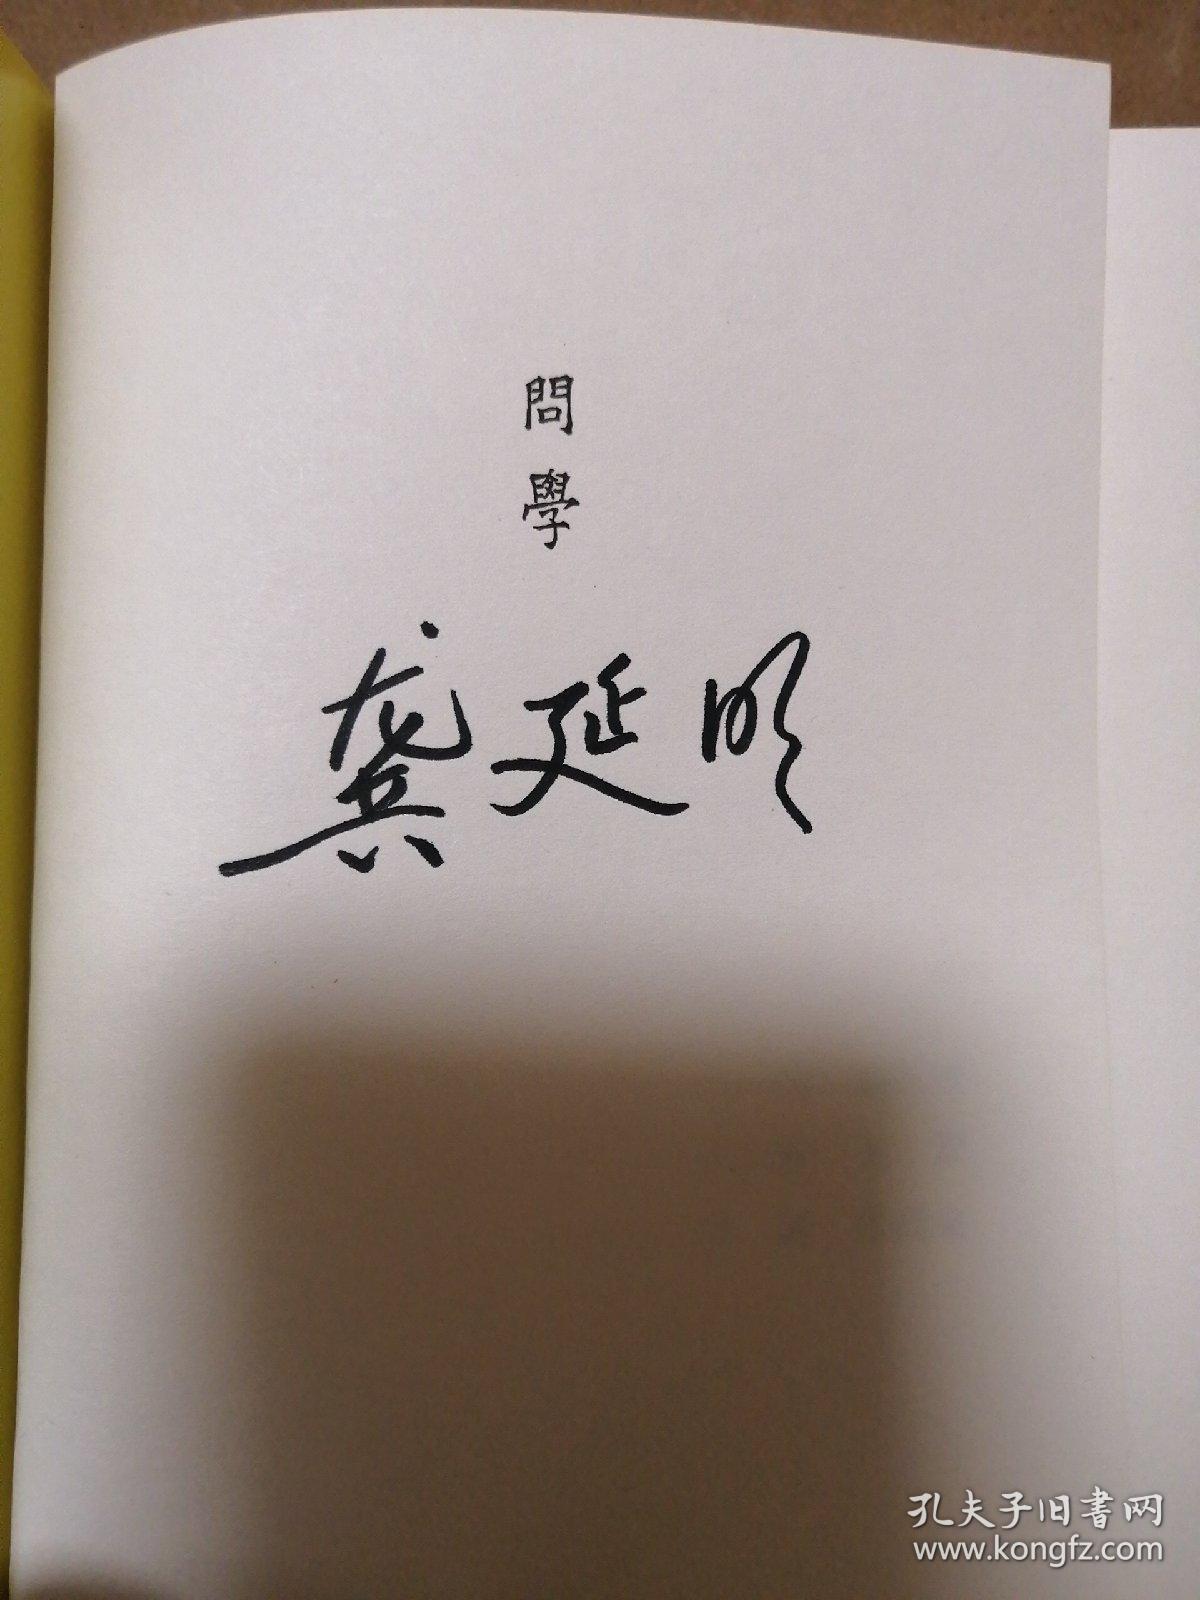 問學
龚延明
孔夫子旧書网
www.kongfz.com